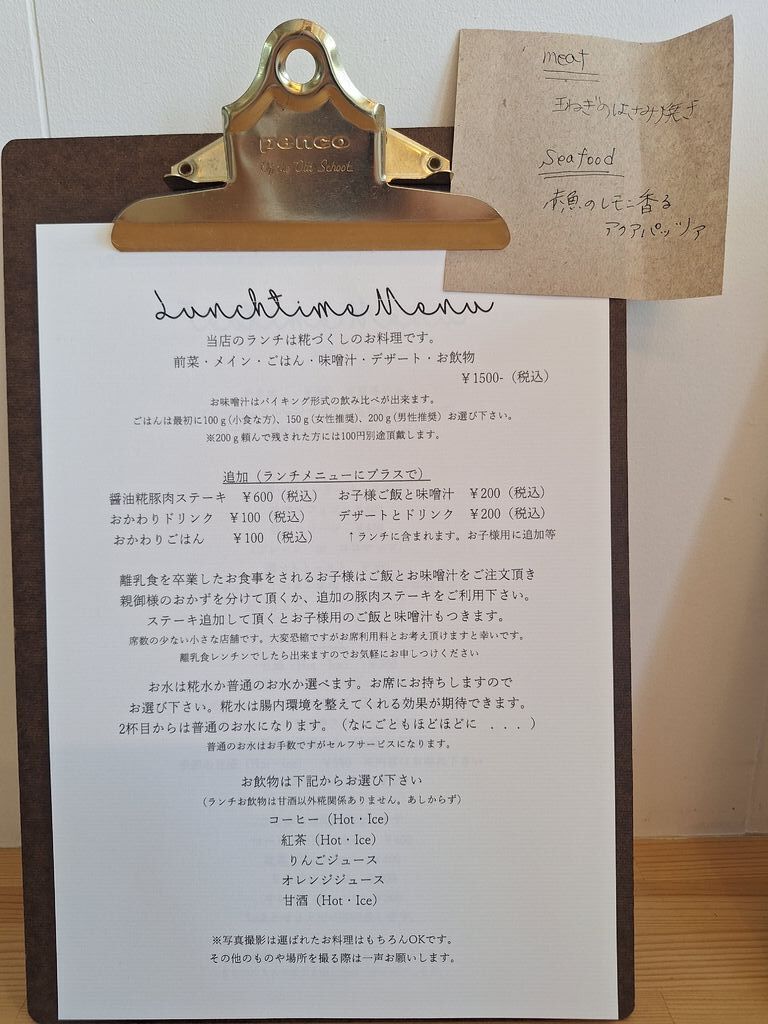 penco
Old School
meat
玉ねぎのはさみ焼き
Seafood
赤魚のレモン香る
アクアパッツァ
Lunchtime Menu
当店のランチは糀づくしのお料理です。
前菜・メイン・ごはん・味噌汁・デザート・お飲物
￥1500-（税込）
お味噌汁はバイキング形式の飲み比べが出来ます。
ごはんは最初に100ｇ(小食な方)、150ｇ(女性推奨)、200ｇ(男性推奨）お選び下さい。
※200ｇ頼んで残された方には100円別途頂戴します。
追加（ランチメニューにプラスで）
醤油糀豚肉ステーキ　￥600（税込）　お子様ご飯と味噌汁　￥200（税込）
おかわりドリンク　￥100（税込）　デザートとドリンク　￥200（税込）
おかわりごはん　￥100 （税込）　↑ランチに含まれます。お子様用に追加等
離乳食を卒業したお食事をされるお子様はご飯とお味噌汁をご注文頂き
親御様のおかずを分けて頂くか、追加の豚肉ステーキをご利用下さい。
ステーキ追加して頂くとお子様用のご飯と味噌汁もつきます。
席数の少ない小さな店舗です。大変恐縮ですがお席利用料とお考え頂けますと幸いです。
離乳食レンチンでしたら出来ますのでお気軽にお申しつけください
お水は糀水か普通のお水か選べます。お席にお持ちしますので
お選び下さい。糀水は腸内環境を整えてくれる効果が期待できます。
2杯目からは普通のお水になります。（なにごともほどほどに　．．．）
普通のお水はお手数ですがセルフサービスになります。
お飲物は下記からお選び下さい
（ランチお飲物は甘酒以外糀関係ありません。あしからず）
コーヒー（Hot・Ice）
紅茶（Hot・Ice）
りんごジュース
オレンジジュース
甘酒（Hot・Ice）
※写真撮影は運ばれたお料理はもちろんOKです。
その他のものや場所を撮る際は一声お願いします。